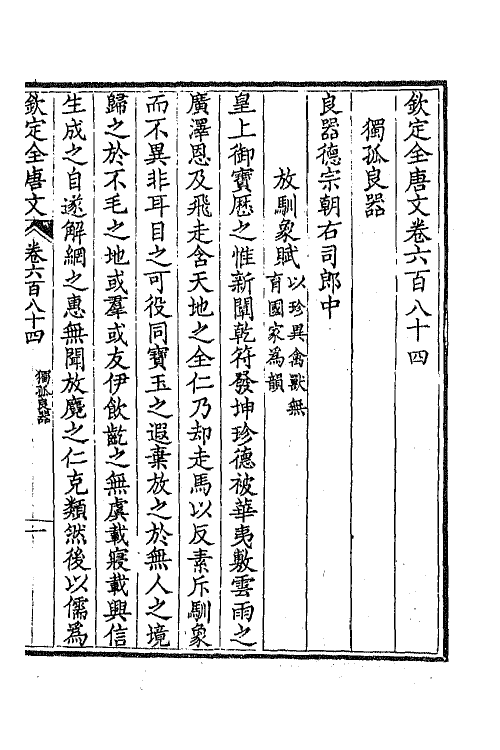 欽定全唐文卷六百八十四
獨孤良器
良器德宗朝右司郎中
放馴象賦以珍異禽獸無
育國家為韻
皇上御寶歷之惟新闡乾符發坤珍德被華夷敷雲雨之
廣澤恩及飛走含天地之全仁乃却走馬以反素斥馴象
而不異非耳目之可役同寶玉之遐棄放之於無人之境
歸之於不毛之地或羣或友伊飲齕之無虞載寢載興信
生成之自遂解網之惠無聞放麑之仁克類然後以儒為
欽定全唐文 卷六百八十四 獨孤良器 一